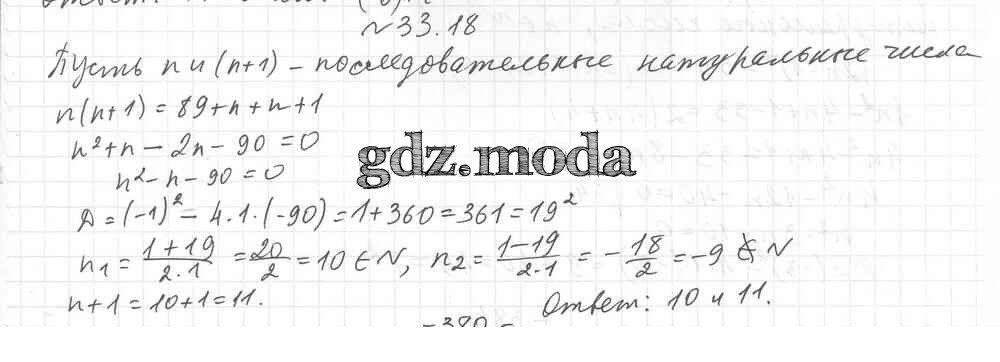 №33.18
Пусть n и (n+1) – последовательные натуральные числа
n(n+1) = 89+n+n+1
n²+n – 2n – 90 = 0
gdz.moda
n²–n–90 = 0
Д = (-1)² – 4·1·(-90) = 1+360 = 361 = 19²
n₁ = (1+19)/(2·1) = 20/2 = 10 ∈ N, n₂ = (1–19)/(2·1) = –18/2 = –9 ∉ N
n+1 = 10+1 = 11.
Ответ: 10 и 11.